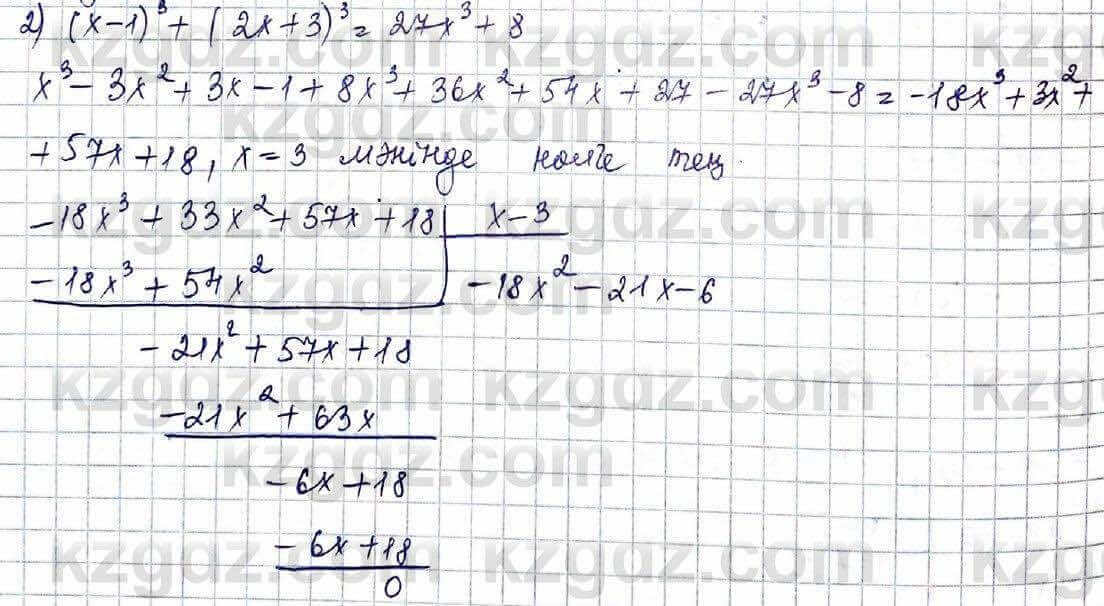 2) (x-1)³ + (2x+3)³ = 27x³ + 8
x³ - 3x² + 3x - 1 + 8x³ + 36x² + 54x + 27 - 27x³ - 8 = -18x³ + 3x² +
+ 57x + 18, x = 3 мәнінде нөлге тең.
-18x³ + 33x² + 57x + 18 | x - 3
-18x³ + 54x² | -18x² - 21x - 6
-21x² + 57x + 18
-21x² + 63x
-6x + 18
-6x + 18
0
kzgdz.com